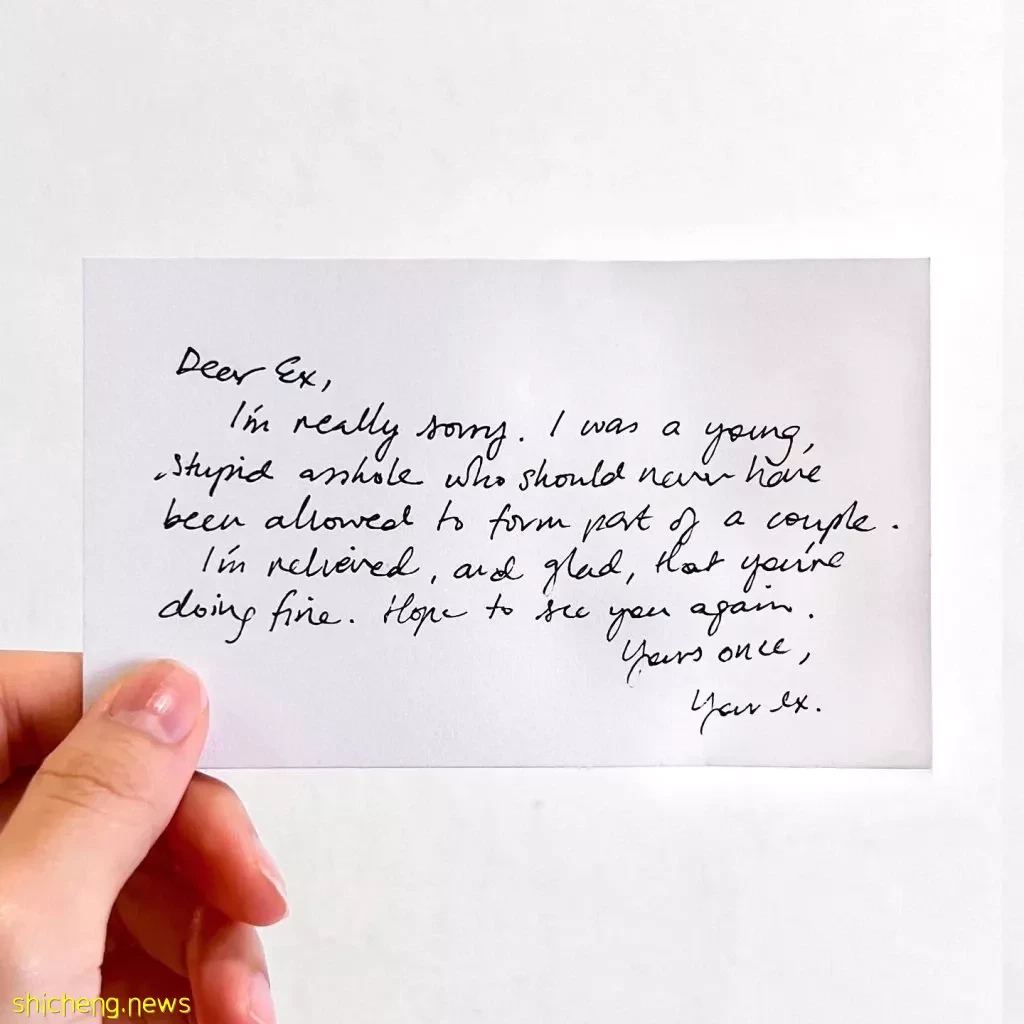 Dear Ex,
I'm really sorry. I was a young,
stupid asshole who should never have
been allowed to form part of a couple.
I'm relieved, and glad, that you're
doing fine. Hope to see you again.
Yours once,
Your ex.
shicheng.news